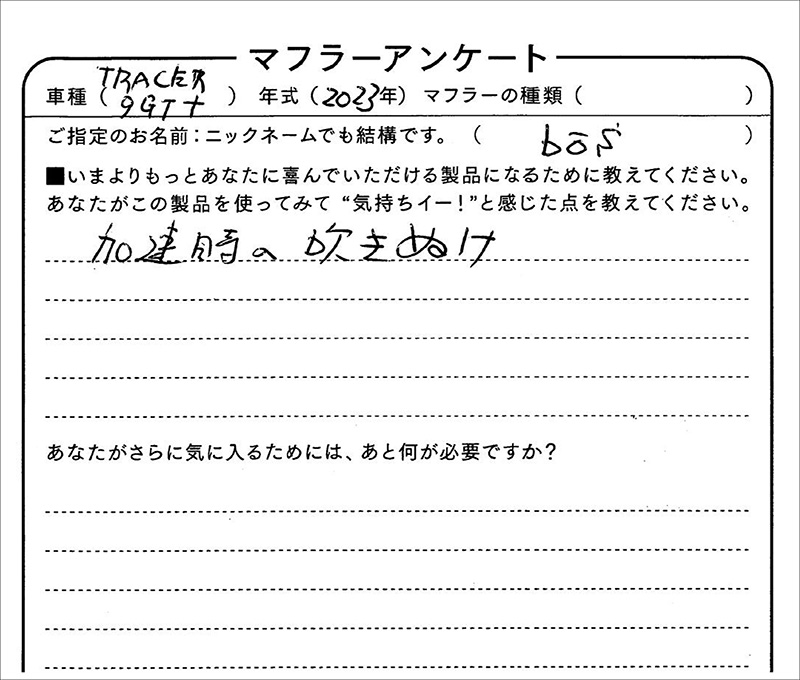 マフラーアンケート
車種（TRACER 9GT+）年式（2023年）マフラーの種類（　）
ご指定のお名前：ニックネームでも結構です。（bōs）
■いまよりもっとあなたに喜んでいただける製品になるために教えてください。
あなたがこの製品を使ってみて“気持ちイー！”と感じた点を教えてください。
加速時の吹きぬけ
あなたがさらに気に入るためには、あと何が必要ですか？